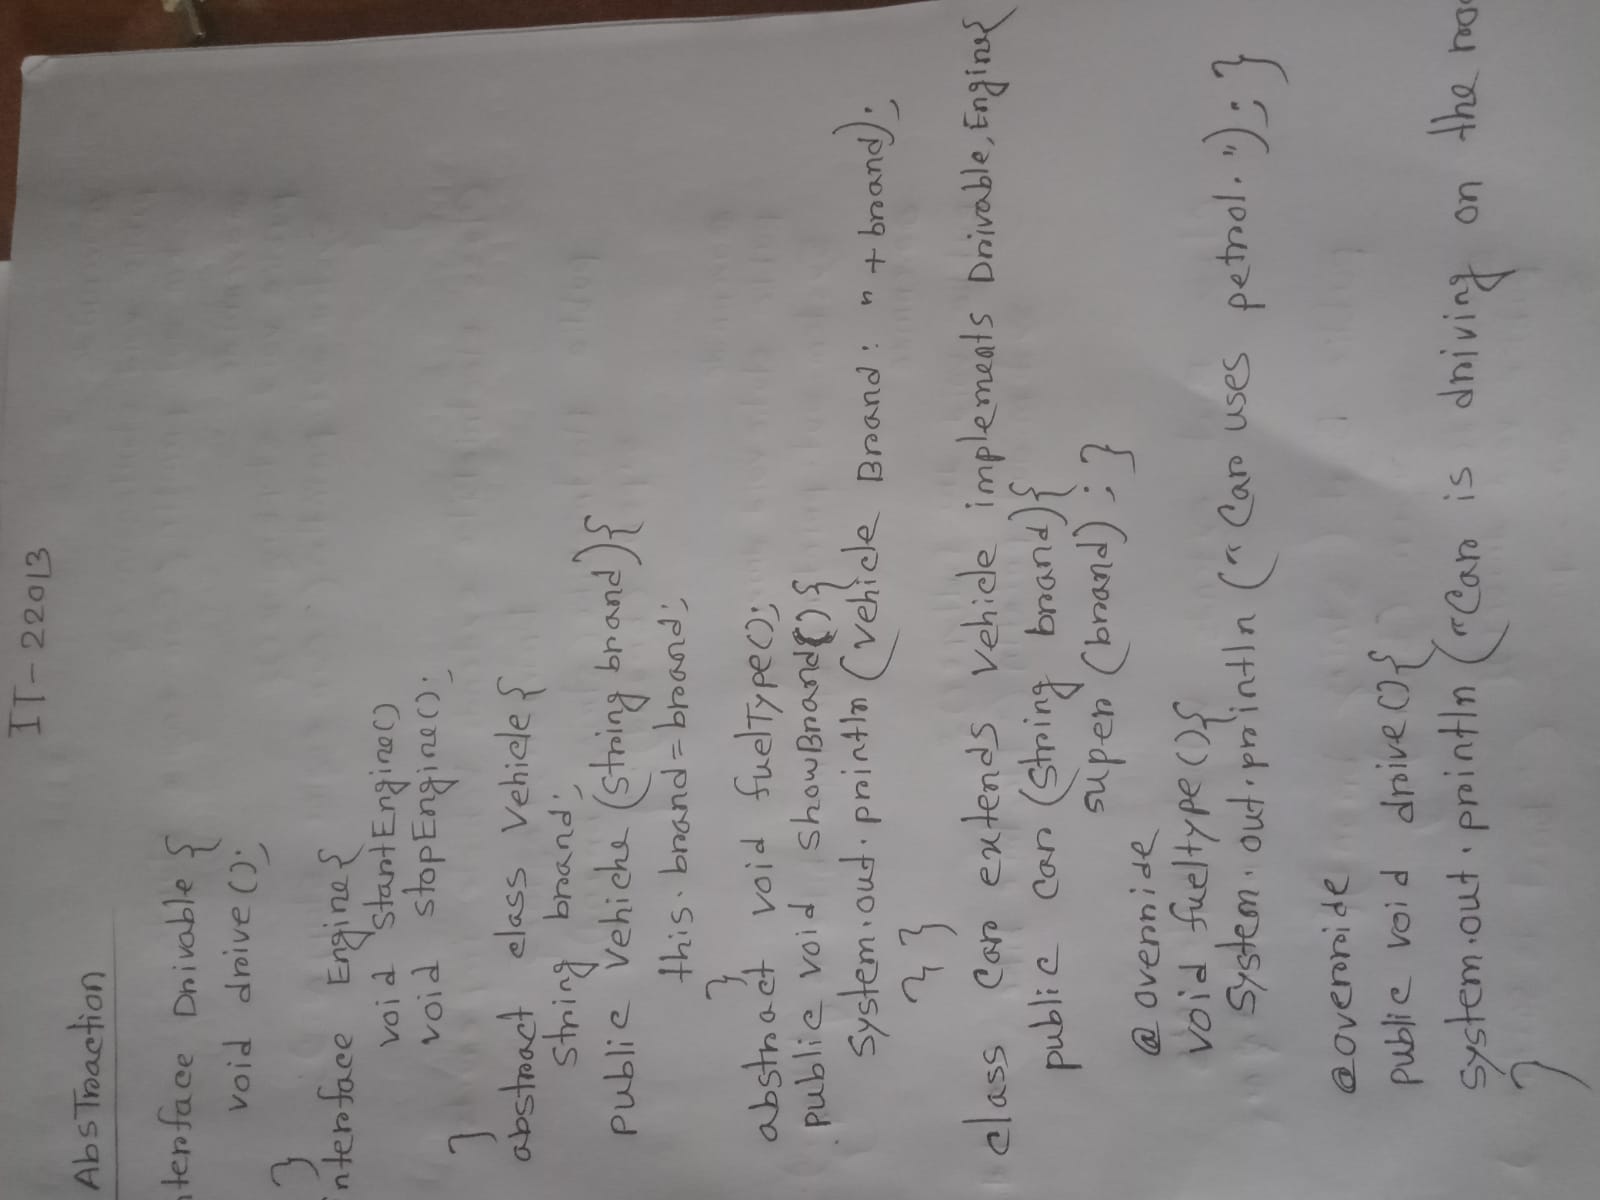 IT-22013
AbsTraction
nterface Drivable {
void drive();
}
interface Engine{
void startEngine()
void stopEngine();
}
abstract class Vehicle {
String brand;
public Vehicle (String brand){
this.brand=brand;
}
abstract void fuelType();
public void showBrand(){
System.out.println (vehicle Brand: " + brand);
} }
class Car extends Vehicle implements Drivable, Engine{
public Car (String brand){
super (brand) ; }
@ override
void fueltype (){
System.out.println ("Car uses petrol."); }
@override
public void drive(){
system.out.println ("Car is driving on the roa
}